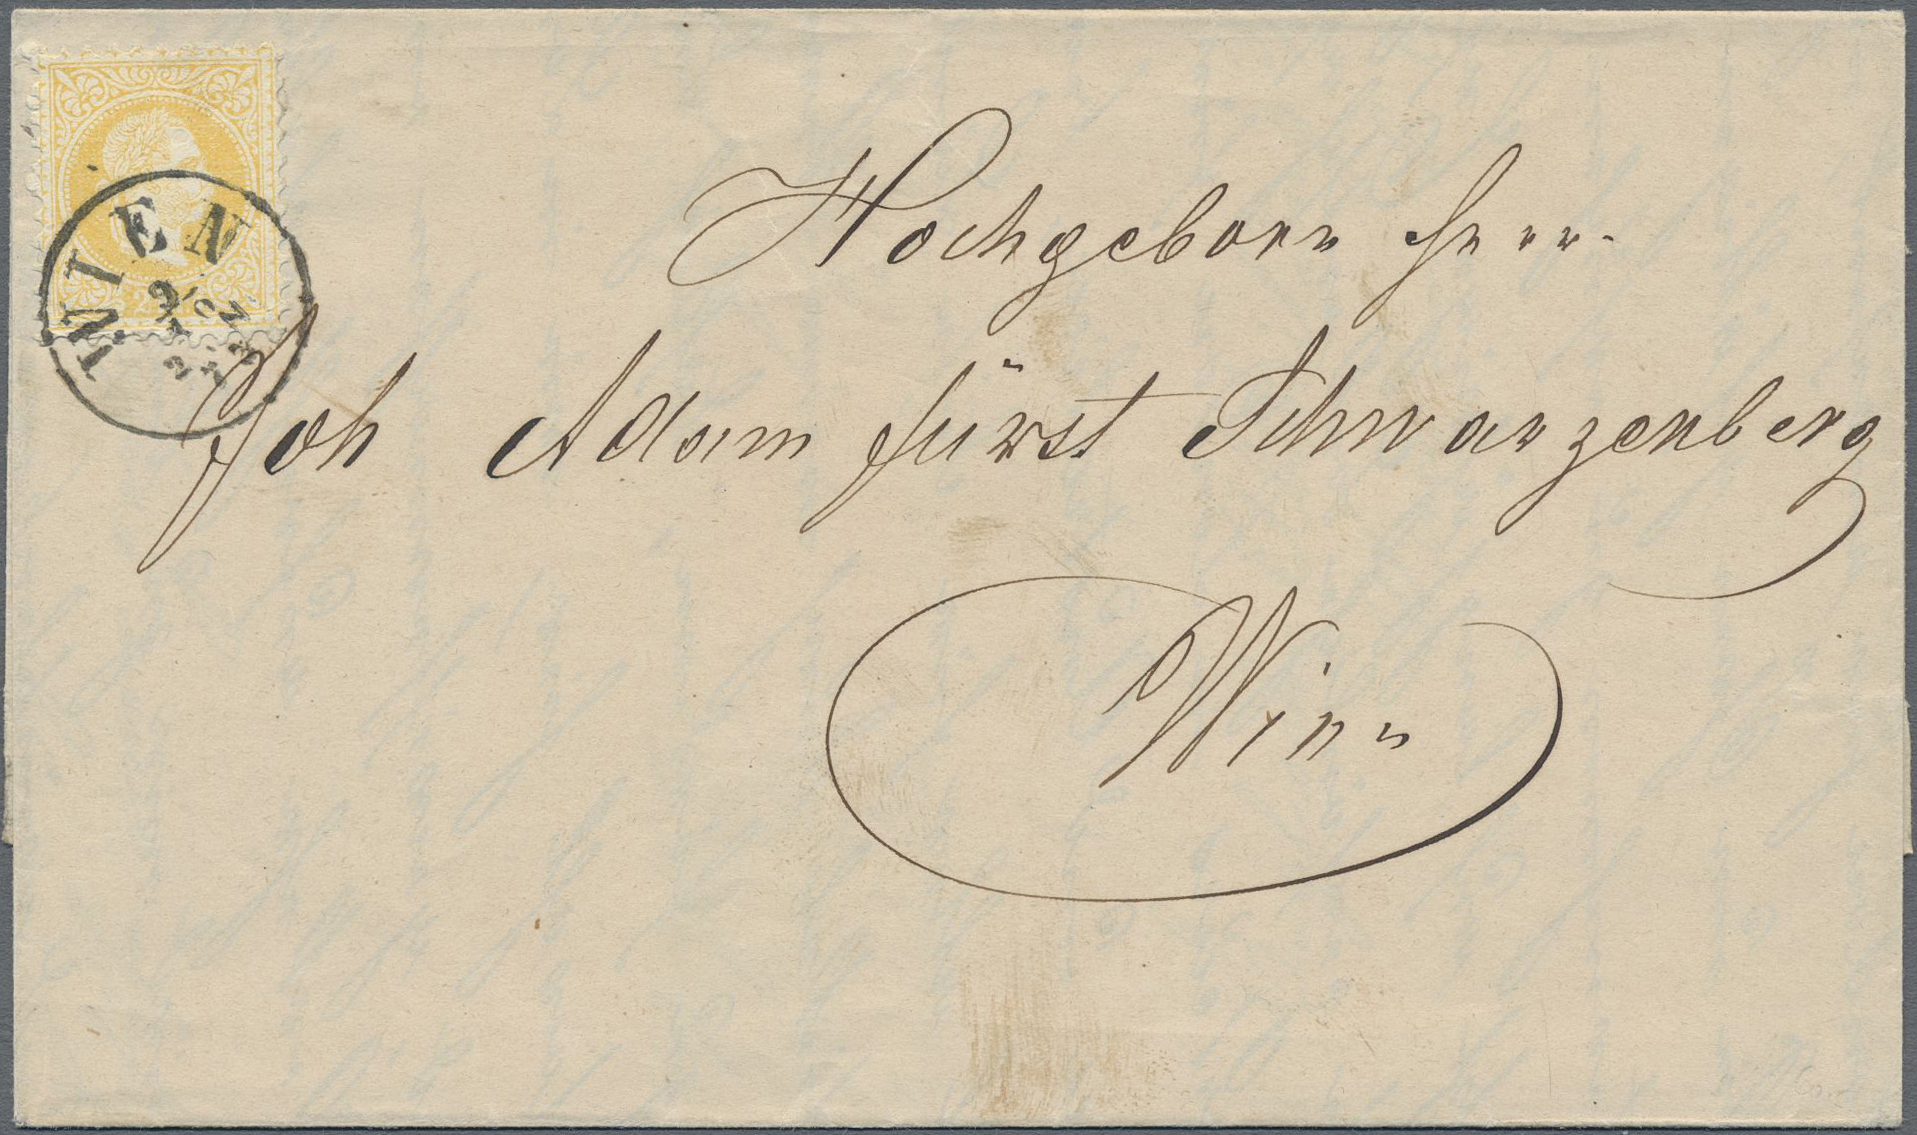 WIEN
Hochgeborn Herr
Joh Adam fürst Schwarzenberg
Wien